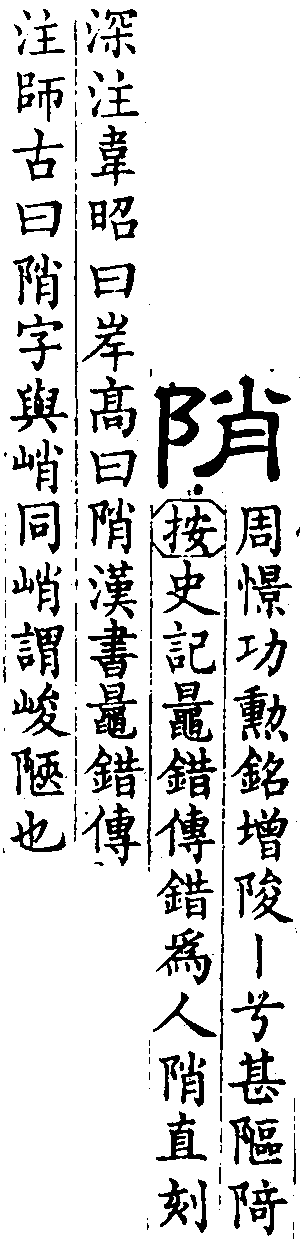 隋
周憬功勲銘增陵丨兮甚隁陭
按史記鼂錯傳錯爲人陗直刻
深注韋昭曰岸高曰陗漢書鼂錯傳
注師古曰陗字與峭同峭謂峻陿也